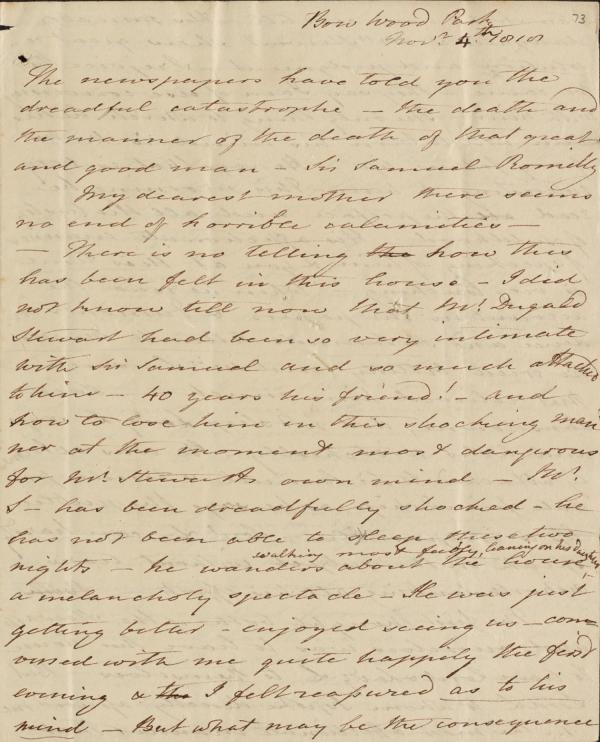 73
Bow Wood Park
Novr. 4th. 1818
The newspapers have told you the
dreadful catastrophe – the death and
the manner of the death of that great
and good man – Sir Samuel Romilly
My dearest mother there seems
no end of horrible calamities –
– There is no telling the how this
has been felt in this house – I did
not know till now that Mr. Dugald
Stewart had been so very intimate
with Sir Samuel and so much attached
to him – 40 years his friend! – and
how to lose him in this shocking man
ner at the moment most dangerous
for Mr. Stewarts own mind – Mr.
S – has been dreadfully shocked – he
has not been able to sleep these two
walking most feebly, leaning on his
nights – he wanders about the house
a melancholy spectacle – He was just
getting better – enjoyed seeing us – con
versed with me quite happily the first
evening & the I felt reassured as to his
mind – But what may be the consequence